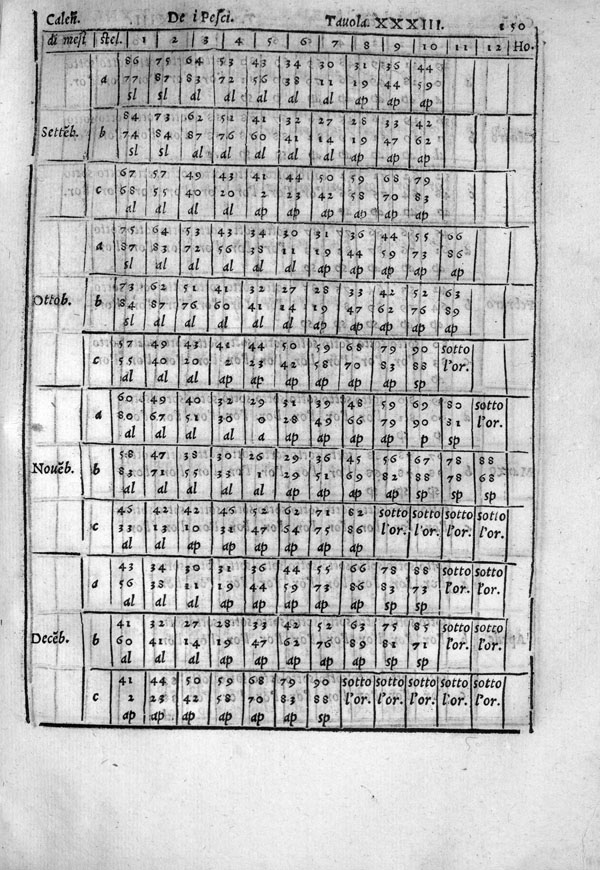 Caleñ. De i Pesci. Tavola. XXXIII. 150
di mesi stel. 1 2 3 4 5 6 7 8 9 10 11 12 Ho.
86 75 64 53 43 34 30 31 36 44
a 77 87 83 72 56 38 11 19 44 59
sl sl al al al al al ap ap ap
84 73 62 52 41 32 27 28 33 42
Settēb. b 74 84 87 76 60 41 14 19 47 62
sl sl al al al al al ap ap ap
67 57 49 43 41 44 50 59 68 79
c 68 55 40 20 2 23 42 58 70 83
al al al al ap ap ap ap ap ap
75 64 53 43 34 30 31 36 44 55 66
a 87 83 72 56 38 11 19 44 59 73 86
sl al al al al al ap ap ap ap ap
73 62 51 41 32 27 28 33 42 52 63
Ottob. b 84 87 76 60 41 14 19 47 62 76 89
sl al al al al al ap ap ap ap ap
57 49 43 41 44 50 59 68 79 90 sotto
c 55 40 20 2 23 42 58 70 83 88 l'or.
al al al ap ap ap ap ap ap sp
60 49 40 32 29 31 39 48 59 69 80 sotto
a 80 67 51 30 0 28 49 66 79 90 81 l'or.
al al al al a ap ap ap ap p sp
58 47 38 30 26 29 36 45 56 67 78 88
Nouēb. b 83 71 55 33 1 29 51 69 82 88 78 68
al al al al al ap ap ap ap sp sp sp
46 42 42 46 52 62 71 82 sotto sotto sotto sotto
c 33 13 10 31 47 64 75 86 l'or. l'or. l'or. l'or.
al al ap ap ap ap ap ap
43 34 30 31 36 44 55 66 78 88 sotto sotto
a 56 38 11 19 44 59 73 86 83 73 l'or. l'or.
al al al ap ap ap ap ap sp sp
41 32 27 28 33 42 52 63 75 85 sotto sotto
Decēb. b 60 41 14 19 47 62 76 89 81 71 l'or. l'or.
al al al ap ap ap ap ap sp sp
41 44 50 59 68 79 90 sotto sotto sotto sotto sotto
c 2 23 42 58 70 83 88 l'or. l'or. l'or. l'or. l'or.
ap ap ap ap ap ap sp